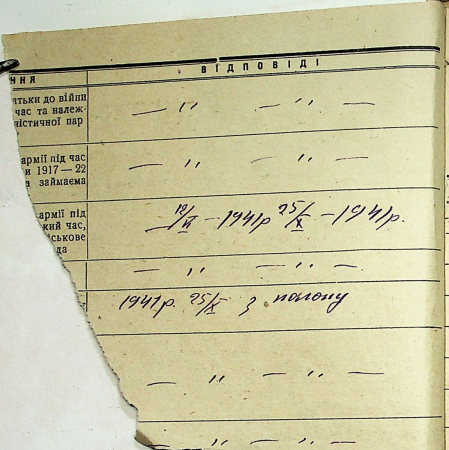 ння
ВІДПОВІДІ
атьки до війни
час та належ-
ністичної пар
— ″ — ″ —
армії під час
и 1917—22
а займаєма
— ″ — ″ —
армії під
кий час,
ськове
да
— 1941р 25/X — 1941р.
— ″ — ″ —
1941р. 25/X з полону
— ″ — ″ —
— ″ — ″ —